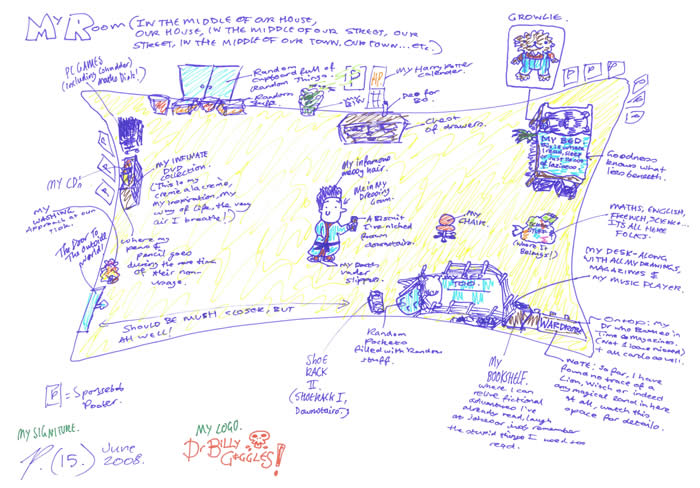 MY ROOM (IN THE MIDDLE OF OUR HOUSE,
OUR HOUSE, IN THE MIDDLE OF OUR STREET, OUR
STREET, IN THE MIDDLE OF OUR TOWN, OUR TOWN... ETC.)
GROWLIE.
PC GAMES
(including (shudder)
Maths Disk!)
Random
cupboard full of
Random Things.
Random
Stuff.
P
HP
My Harry Potter
Calender.
Deo for
BO.
Chest
of drawers.
P P P
P
P
P
P
P
P
MY BED
Goodness
knows what
lies beneath.
MY CDs
MY INFINATE
DVD
COLLECTION.
(This is my
creme a la creme,
my inspiration, my
way of life, the very
air I breathe!)
My infamous
messy hair.
Me in My
Dressing
Gown.
A Biscuit
I've nicked
from
downstairs.
My Beast
under
slippers.
MY
CHAIR.
(Where It
Belongs!)
MATHS, ENGLISH,
FRENCH, SCIENCE...
IT'S ALL HERE
FOLKS.
MY
WASHING
Approach at own
risk.
The Door To
The outside
world!
Where my
pens &
pencil goes
during the rare time
of their non-
usage.
MY DESK-ALONG
WITH ALL MY DRAWINGS,
MAGAZINES &
MY MUSIC PLAYER.
SHOULD BE MUSH CLOSER, BUT
AH WELL!
Random
Pockets
filled with Random
stuff.
SHOE
RACK
II.
(SHOERACK I,
Downstairs.)
WARDROBE
On top: my
Dr Who
Time
Magazines.
(Not 1 issue missed)
+ all cards as well.
NOTE: So far, I have
found no trace of a
Lion, Witch or indeed
any magical land in here
at all, watch this
space for details.
MY
BOOKSHELF.
where I can
relive fictional
adventures I've
already read, laugh
at jokes or just remember
the stupid things I used to
read.
P = Spongebob
Poster.
MY SIGNITURE.
P. (15.) June
2008.
MY LOGO.
Dr BILLY
GOGGLES!